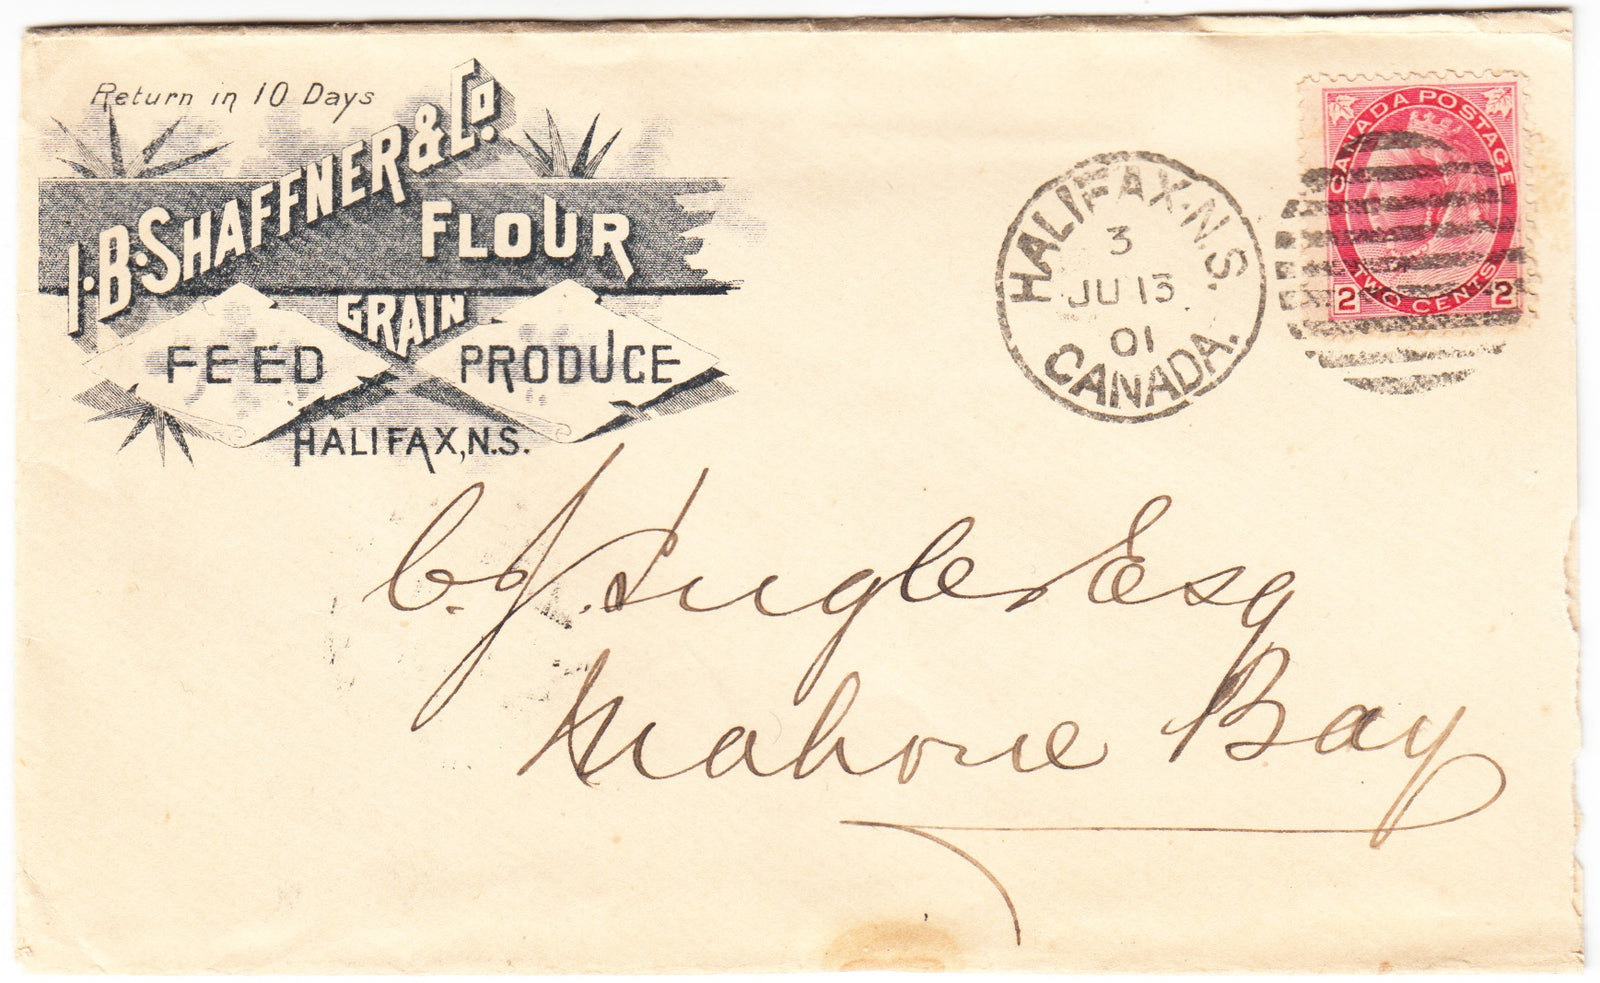 Return in 10 Days
I.B. SHAFFNER & Co.
FLOUR
GRAIN
FEED
PRODUCE
HALIFAX, N.S.
HALIFAX. N.S.
3
JU 13
01
CANADA.
CANADA POSTAGE
TWO CENTS
2 2
C. J. Ingles Esq
Mahone Bay